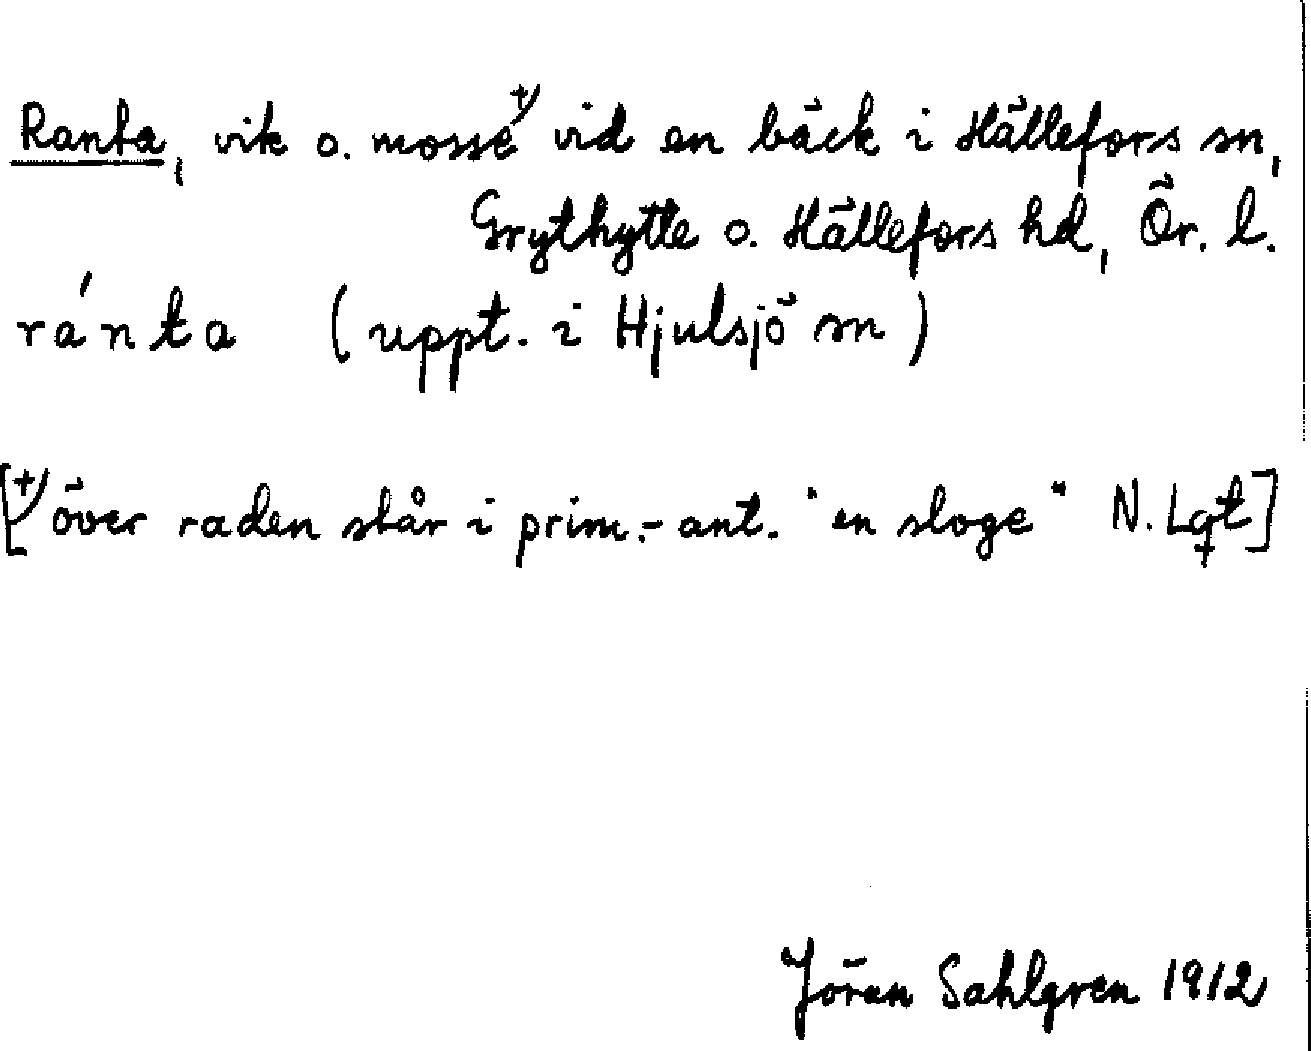 Ranta, vik o. mosse +) vid en bäck i Hällefors sn,
Grythytte o. Hällefors hd, Ör. l.
ránta (uppt. i Hjulsjö sn)
[+) över raden står i prim.-ant. "en sloge" N. Lgt]
Jöran Sahlgren 1912